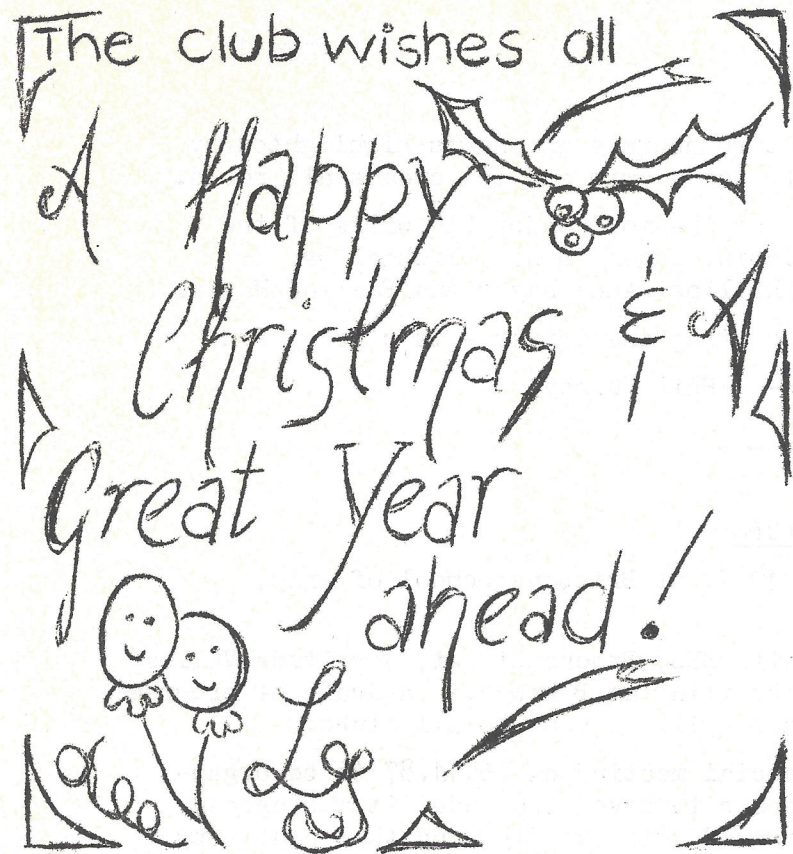 The club wishes all
A Happy
Christmas & A
Great Year
ahead!